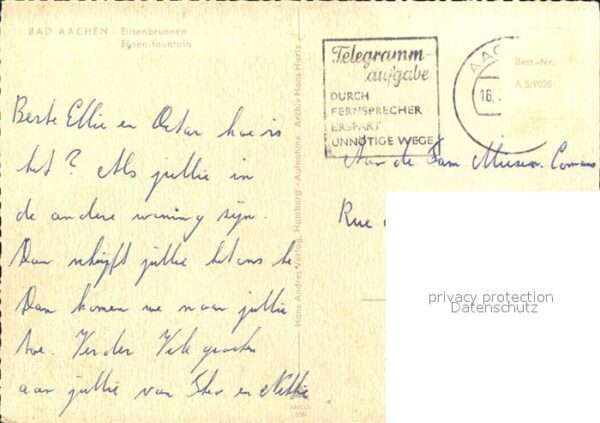 BAD AACHEN - Elisenbrunnen
Elisen-fountain
Telegramm-
aufgabe
DURCH
FERNSPRECHER
ERSPART
UNNÖTIGE WEGE
AAC
16.
Best.-Nr.
A 5/9028
Beste Ellie en Oscar hoe is
het? Als jullie in
de andere woning zijn.
Dan schrijft jullie het ons he
Dan komen we naar jullie
toe. Verder Vele groeten
aan jullie van Ster en Nellie.
Aan de Fam
Rue
Hans Andres Verlag, Hamburg - Aufnahme: Archiv Hans Hartz
privacy protection
Datenschutz